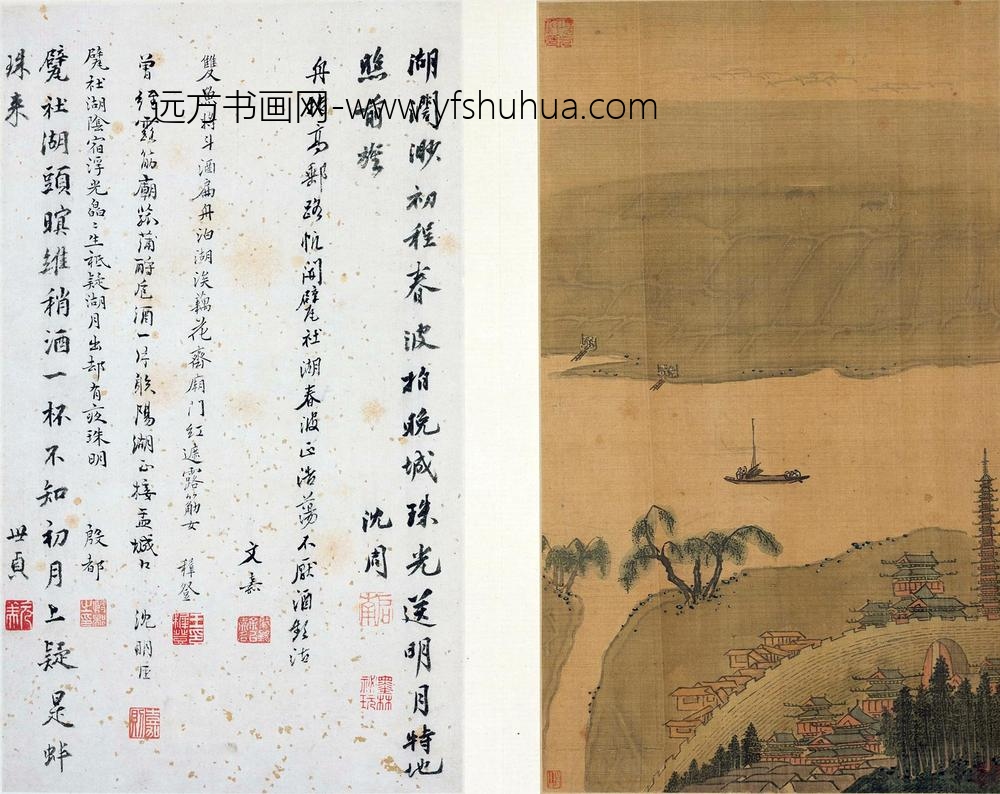 远方书画网-www.yfshuhua.com
湖濶渺初程春波拍晚城珠光送明月特地
照
沈周
舟次高郵路恍開甓社湖春波正浩蕩不厭酒頻沽
文嘉
雙魚將斗酒扁舟泊湖涘藕花齊廟門紅遮露筋女 穉登
曾經露筋廟菰蒲酹卮酒一片陽湖正接盂城口 沈明臣
甓社湖陰宿浮光晶々生祗疑湖月出却有夜珠明 殷都
甓社湖頭暝維稍酒一杯不知初月上疑是蚌
珠来 世貞